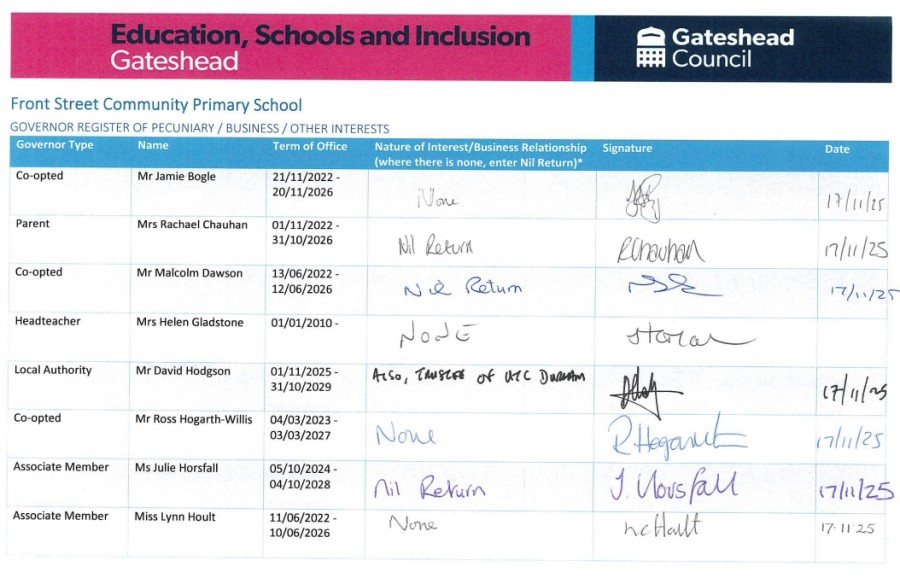 Education, Schools and Inclusion
Gateshead
Gateshead
Council
Front Street Community Primary School
GOVERNOR REGISTER OF PECUNIARY / BUSINESS / OTHER INTERESTS
Governor Type Name Term of Office Nature of Interest/Business Relationship (where there is none, enter Nil Return)* Signature Date
Co-opted Mr Jamie Bogle 21/11/2022 -
20/11/2026 None 17/11/25
Parent Mrs Rachael Chauhan 01/11/2022 -
31/10/2026 Nil Return RChauhan 17/11/25
Co-opted Mr Malcolm Dawson 13/06/2022 -
12/06/2026 Nil Return 17/11/25
Headteacher Mrs Helen Gladstone 01/01/2010 - NONE
Local Authority Mr David Hodgson 01/11/2025 -
31/10/2029 ALSO, TRUSTEE OF UTC DURHAM 17/11/25
Co-opted Mr Ross Hogarth-Willis 04/03/2023 -
03/03/2027 None 17/11/25
Associate Member Ms Julie Horsfall 05/10/2024 -
04/10/2028 Nil Return J. Horsfall 17/11/25
Associate Member Miss Lynn Hoult 11/06/2022 -
10/06/2026 None 17.11.25